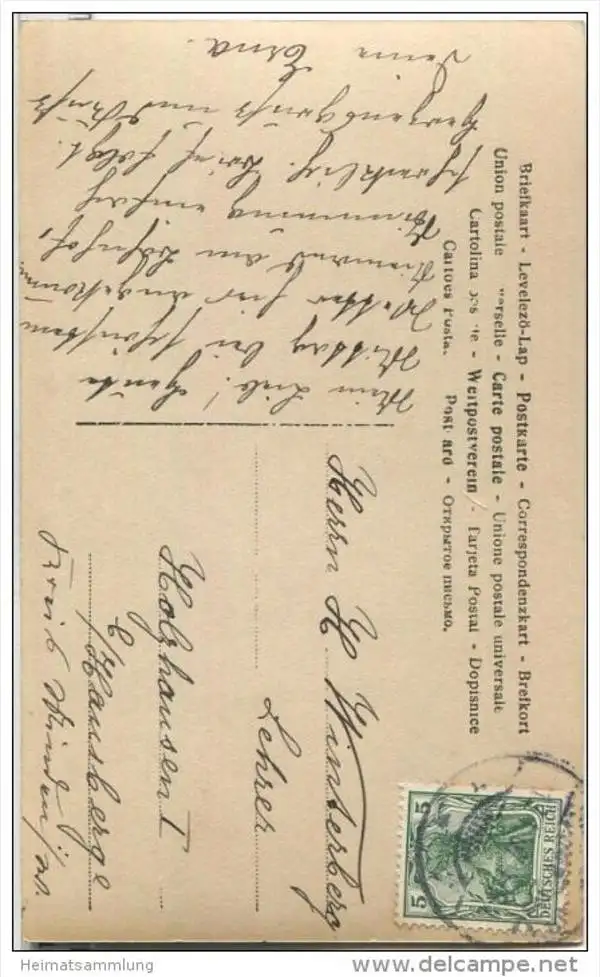 Briefkaart - Levelező-Lap - Postkarte - Correspondenzkart - Brefkort
Union postale verselle - Carte postale - Unione postale universale
Cartolina pos le - Weltpostverein - Tarjeta Postal - Dopisnice
Cartoes Posta. Post ard - Открытое письмо.
Mein Lieb! Heute
Mittag bei schönstem
Wetter hier angekommen.
Niemand am Bahnhof,
Stimmung einfach
schrecklich. Brief folgt.
Herzensgruß und Kuß
Deine Erna.
Herrn H. Winterberg
Lehrer
Holzhausen I
b/Hausberge
Kreis Minden i/W.
DEUTSCHES REICH
5 5
Heimatsammlung
www.delcampe.net